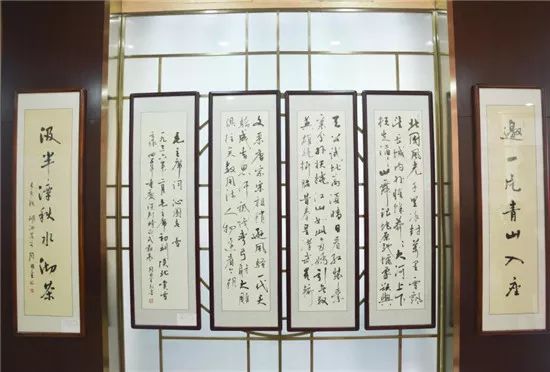 邀一片青山入座
北國風光千里冰封万里雪飘
望长城内外惟馀莽莽大河上下
顿失滔滔山舞银蛇原驰蜡象欲与
天公试比高须晴日看红装素
裹分外妖娆江山如此多娇引无数
英雄竞折腰昔秦皇汉武略输
文采唐宗宋祖稍逊风骚一代天
骄成吉思汗只识弯弓射大雕
俱往矣数风流人物还看今朝
毛主席词沁园春雪
一九三六年二月毛主席初到陕北看雪
汲半潭秋水沏茶